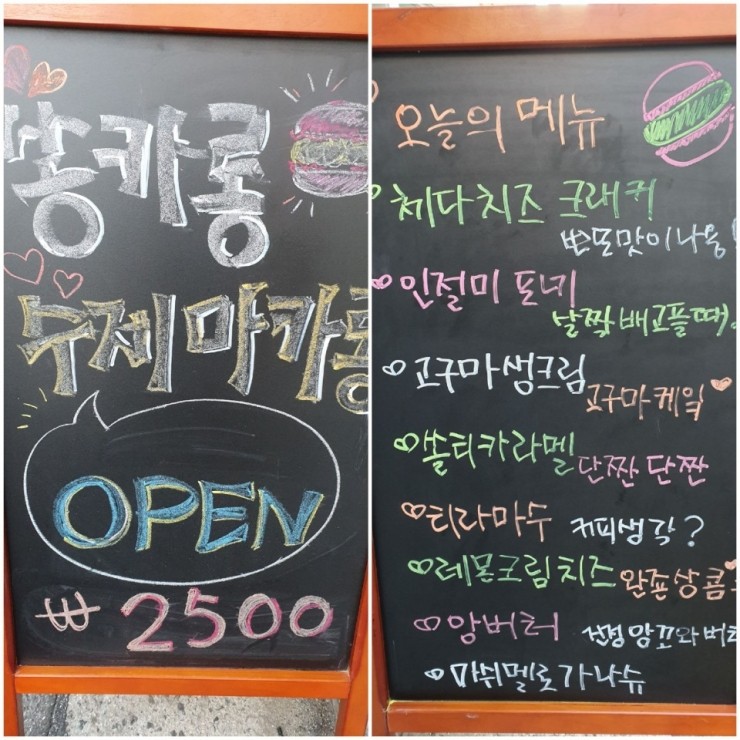 뚱카롱
수제마카롱
OPEN
₩2500
오늘의 메뉴
체다치즈 크래커
뽀또맛이나용!
인절미 쪼네
날짝 배고플때
고구마생크림
고구마케잌
쏠티카라멜
단짠 단짠
티라마수
커피생각?
레몬크림치즈
완죤상콤
앙버터
앙꼬와 버터
마쉬멜로가나슈